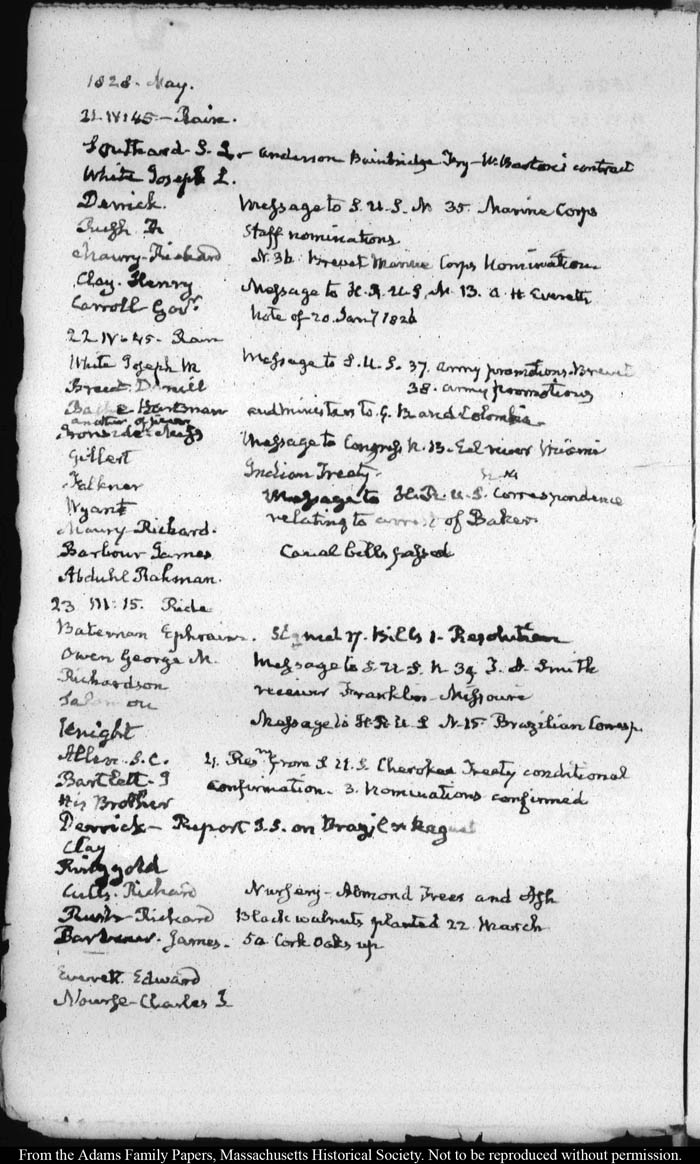 1828. May.
21. IV:45 - Rain.
Southard S. L. - Anderson Bainbridge Fry - W. Barton's contract
White Joseph L.
Derrick. Message to S. U. S. N. 35. Marine Corps
Pugh Staff nominations.
Maury - Richard N. 36. Brevet Marine Corps Nomination
Clay. Henry Message to H. R. U. S. N 13. A. H Everett
Carroll Govr. Note of 20. Jany 1826
22 IV. 45. Rain
White Joseph M Message to S. U. S. 37. Army promotions. Brevet
Brent. Daniel 38. Army promotions
Hartman and ministers to G. B. and Colombia
another officer
Message to Congress N. 13. Eel river Miami
Gilbert Indian Treaty. N. 14
Falkner Message to H. R. U. S. Correspondence
Wyant relating to arrest of Baker.
Maury Richard.
Barbour James Canal bills passed
Abduhl Rahman.
23 III: 15. Ride
Bateman Ephraim. Signed 17. Bills 1 - Resolution
Owen George M. Message to S. U. S. N 39 Smith
Richardson receiver Franklin - Missouri
Message to H. R. U. S N. 15. Brazilian Corresp.
Knight
Allen. S. C. 4. Resns from S U. S. Cherokee Treaty conditional
Bartlett. I confirmation. 3. Nominations confirmed
His Brother
Derrick - Report S. S. on Brazil &
Clay
Ringgold
Cutts. Richard Nursery - Almond Trees and Ash
Rush - Richard Black walnuts planted 22 March
Barbour. James. 50 Cork Oaks up
Everett. Edward
Nourse - Charles J.
From the Adams Family Papers, Massachusetts Historical Society. Not to be reproduced without permission.